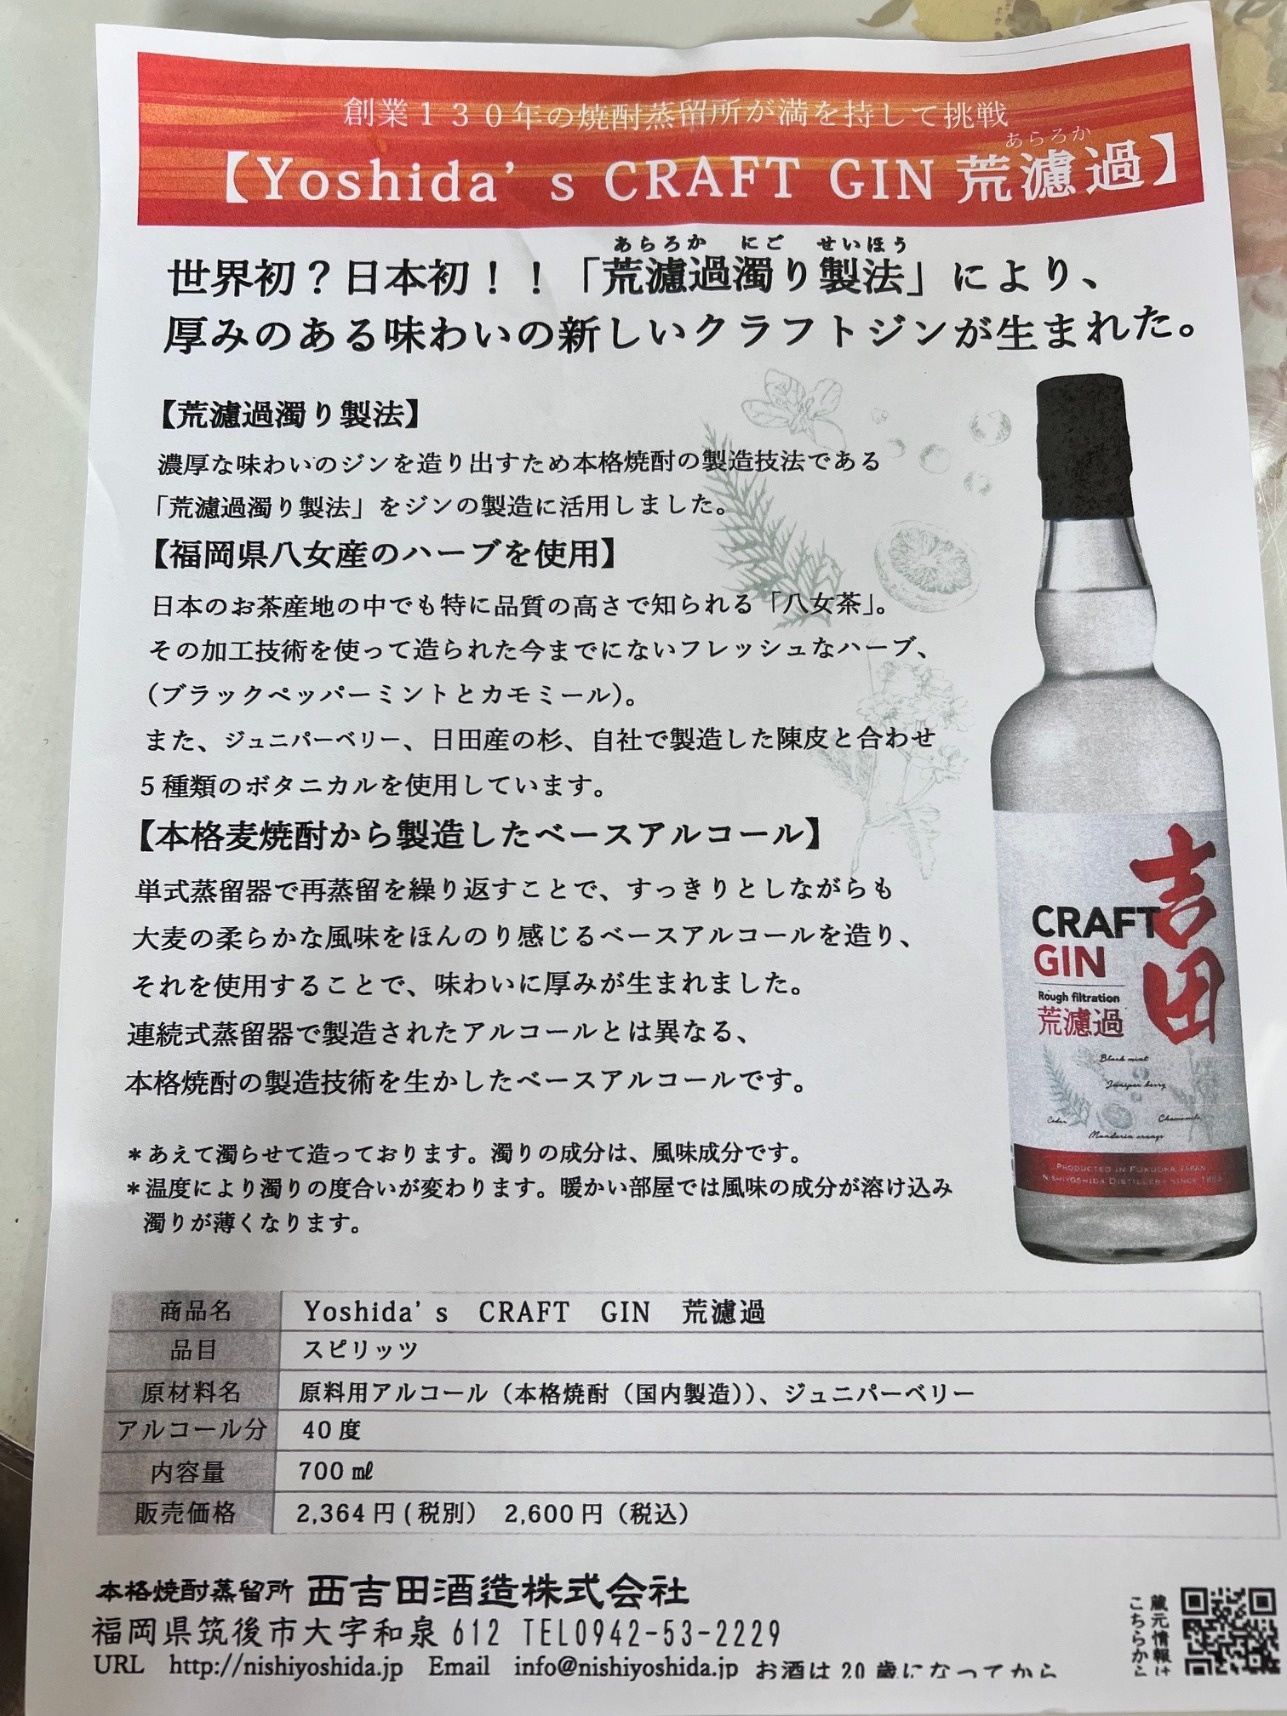 創業130年の焼酎蒸留所が満を持して挑戦
あらろか
【Yoshida's CRAFT GIN 荒濾過】
あらろか にご せいほう
世界初？日本初！！「荒濾過濁り製法」により、
厚みのある味わいの新しいクラフトジンが生まれた。
【荒濾過濁り製法】
濃厚な味わいのジンを造り出すため本格焼酎の製造技法である
「荒濾過濁り製法」をジンの製造に活用しました。
【福岡県八女産のハーブを使用】
日本のお茶産地の中でも特に品質の高さで知られる「八女茶」。
その加工技術を使って造られた今までにないフレッシュなハーブ、
（ブラックペッパーミントとカモミール）。
また、ジュニパーベリー、日田産の杉、自社で製造した陳皮と合わせ
5種類のボタニカルを使用しています。
【本格麦焼酎から製造したベースアルコール】
単式蒸留器で再蒸留を繰り返すことで、すっきりとしながらも
大麦の柔らかな風味をほんのり感じるベースアルコールを造り、
それを使用することで、味わいに厚みが生まれました。
連続式蒸留器で製造されたアルコールとは異なる、
本格焼酎の製造技術を生かしたベースアルコールです。
＊あえて濁らせて造っております。濁りの成分は、風味成分です。
＊温度により濁りの度合いが変わります。暖かい部屋では風味の成分が溶け込み
濁りが薄くなります。
吉田
CRAFT
GIN
Rough filtration
荒濾過
Black mint
Juniper berry
Ceder
Chamomile
Mandarin orange
PRODUCTED IN FUKUOKA JAPAN
NISHIYOSHIDA DISTILLERY SINCE
商品名 Yoshida's CRAFT GIN 荒濾過
品目 スピリッツ
原材料名 原料用アルコール（本格焼酎（国内製造））、ジュニパーベリー
アルコール分 40度
内容量 700㎖
販売価格 2,364円(税別） 2,600円（税込）
本格焼酎蒸留所 西吉田酒造株式会社
福岡県筑後市大字和泉612 TEL0942-53-2229
URL http://nishiyoshida.jp Email info@nishiyoshida.jp お酒は20歳になってから
蔵元情報は
こちらから